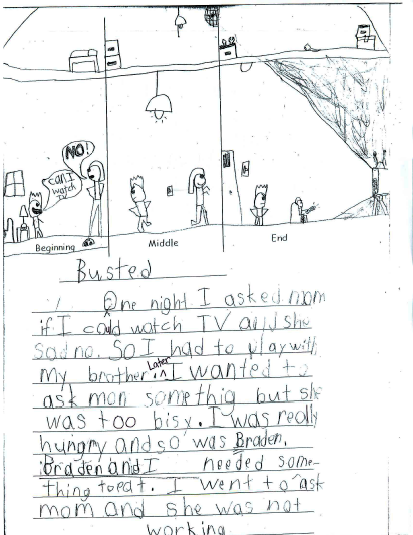 NO!
can I
watch
TV
Beginning
Middle
End
Busted
One night I asked mom
if I could watch TV and she
sad no. So I had to play with
my brother. Later I wanted to
ask mon somethig but she
was too bisy. I was really
hungry and so was Braden.
Braden and I needed some-
thing to eat. I went to ask
mom and she was not
working